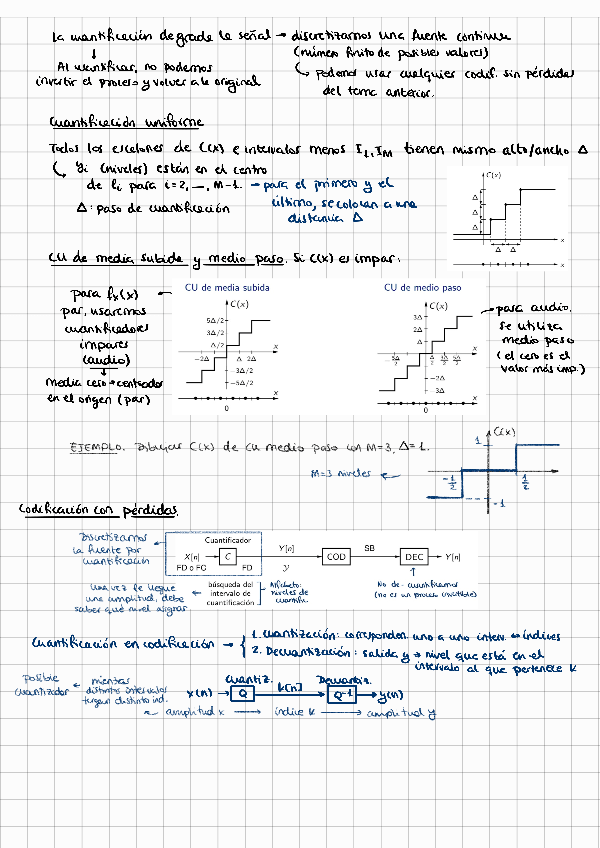 La cuantificación degrada la señal → discretizamos una fuente continua
(número finito de posibles valores)
Al cuantificar, no podemos
invertir el proceso y volver a la original
↳ podemos usar cualquier codif. sin pérdidas
del tema anterior.
Cuantificación uniforme
Todos los escalones de C(x) e intervalos menos I1, IM tienen mismo alto/ancho Δ
↳ yi (niveles) están en el centro
de Ii para i=2, ..., M-1. → para el primero y el
último, se colocan a una
distancia Δ
Δ: paso de cuantificación
C(x)
Δ
Δ
Δ
Δ Δ
x
x
CU de media subida y medio paso. Si C(x) es impar:
para fx(x)
par, usaremos
cuantificadores
impares
(audio)
media cero → centrados
en el origen (par)
CU de media subida
C(x)
5Δ/2
3Δ/2
Δ/2
−2Δ Δ 2Δ x
−3Δ/2
−5Δ/2
x
0
CU de medio paso
C(x)
3Δ
2Δ
−2Δ
−3Δ
x
x
0
para audio,
se utiliza
medio paso
(el cero es el
valor más imp.)
EJEMPLO. Dibujar C(x) de CU medio paso con M=3, Δ=1.
M=3 niveles
C(x)
1
-1/2 1/2
-1
Codificación con pérdidas.
Discretizamos
la fuente por
cuantificación
Cuantificador
X[n] → C
FD o FC FD
Y[n]
y
COD
SB
DEC → Y[n]
una vez le llegue
una amplitud, debe
saber qué nivel asignar
búsqueda del
intervalo de
cuantificación
Alfabeto:
niveles de
cuantific.
No de-cuantificamos
(no es un proceso invertible)
Cuantificación en codificación →
1. Cuantización: corresponden. uno a uno interv. ↔ índices
2. Decuantización: salida y → nivel que está en el
intervalo al que pertenece k
Posible
cuantizador
← mientras
distintos intervalos
tengan distinto ind.
Cuantiz. Decuantiz.
x(n) → Q k[n] → Q-1 → y(n)
amplitud x → índice k → amplitud y